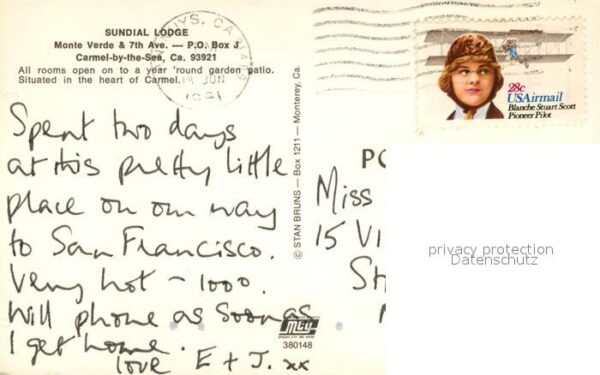 SUNDIAL LODGE
Monte Verde & 7th Ave. — P.O. Box J
Carmel-by-the-Sea, Ca. 93921
All rooms open on to a year 'round garden patio.
Situated in the heart of Carmel.
NUYS, CA
JUN
1981
28c
USAirmail
Blanche Stuart Scott
Pioneer Pilot
Spent two days
at this pretty little
place on our way
to San Francisco.
Very hot – 100o.
Will phone as soon as
I get home.
love E + J. xx
© STAN BRUNS — Box 1211 — Monterey, Ca.
MWM
380148
PO
Miss
15 VI
St
privacy protection
Datenschutz